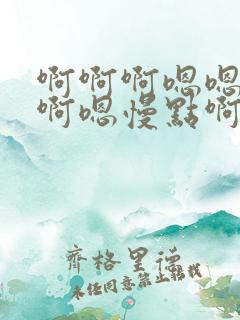 啊啊啊嗯嗯
啊嗯慢點啊
齊格里德
未经同意禁止转载